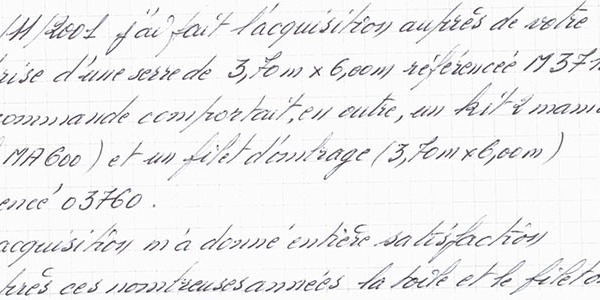 /11/2001 j'ai fait l'acquisition auprès de votre
rise d'une serre de 3,70m x 6,00m référenceé M371
ommande comportait, en outre, un kit 2 mam
MA600) et un filet d'ombrage (3,70m x 6,00m)
encé 03760.
acquisition m'a donné entière satisfaction
près ces nombreuses années la toile et le filet